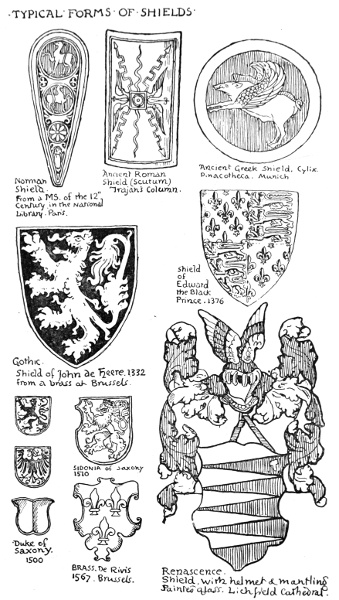 ·TYPICAL·FORMS·OF·SHIELDS·
Norman
Shield.
From a MS. of the 12th
Century in the National
Library. Paris.
Ancient Roman
Shield (Scutum)
Trajan's Column.
Ancient Greek Shield. Cylix.
Pinacotheca. Munich
Shield
of
Edward
the Black
Prince. 1376
Gothic.
Shield of John de Heere. 1332
from a brass at Brussels.
SIDONIA of Saxony
1510
Duke of
Saxony.
1500
BRASS. De Rivis
1567. Brussels.
Renascence.
Shield, with helmet & mantling
Painted glass. Lichfield Cathedral.